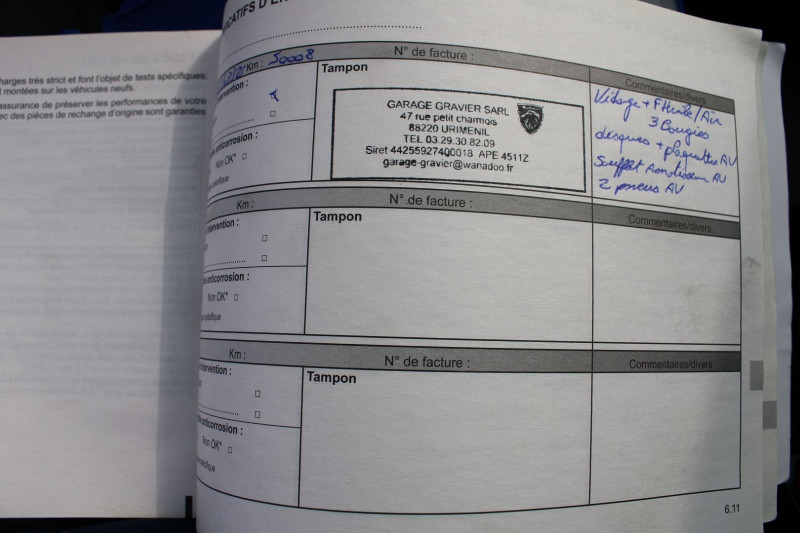 harges très strict et font l'objet de tests spécifiques.
montées sur les véhicules neufs.
assurance de préserver les performances de votre
ec des pièces de rechange d'origine sont garanties
ICATIFS D'EN
Km : 50008
N° de facture :
Commentaires/divers
ervention :
Tampon
GARAGE GRAVIER SARL
47 rue petit charmois
88220 URIMENIL
TEL 03.29.30.82.09
Siret 44255927400018 APE 4511Z
garage-gravier@wanadoo.fr
Vidage + F Huile/Air
3 Bougies
disques + plaquettes AV
Soufflet Amortisseur AV
2 pneus AV
anticorrosion :
Non OK* □
spécifique
Km :
N° de facture :
Commentaires/divers
ntervention :
Tampon
anticorrosion :
Non OK* □
spécifique
Km :
N° de facture :
Commentaires/divers
ntervention :
Tampon
anticorrosion :
Non OK* □
spécifique
6.11